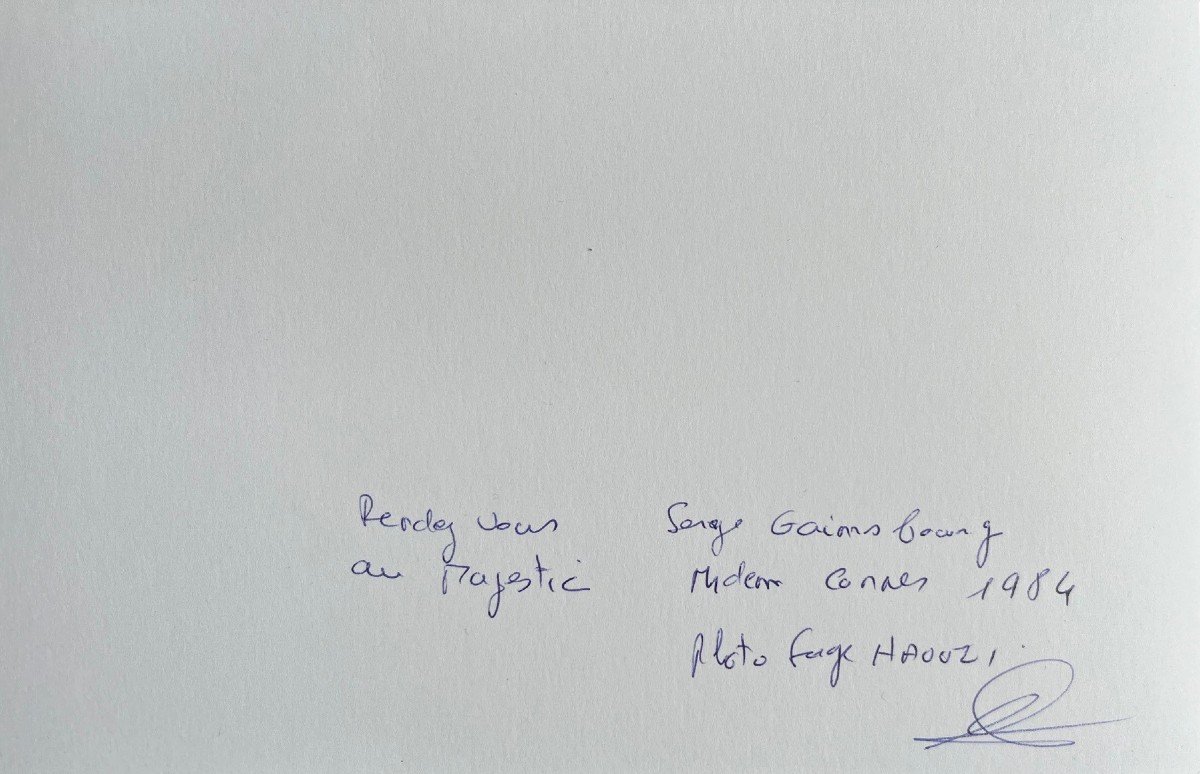 Rendez vous
au Majestic
Serge Gainsbourg
Midem Cannes 1984
Photo Serge HAOUZI